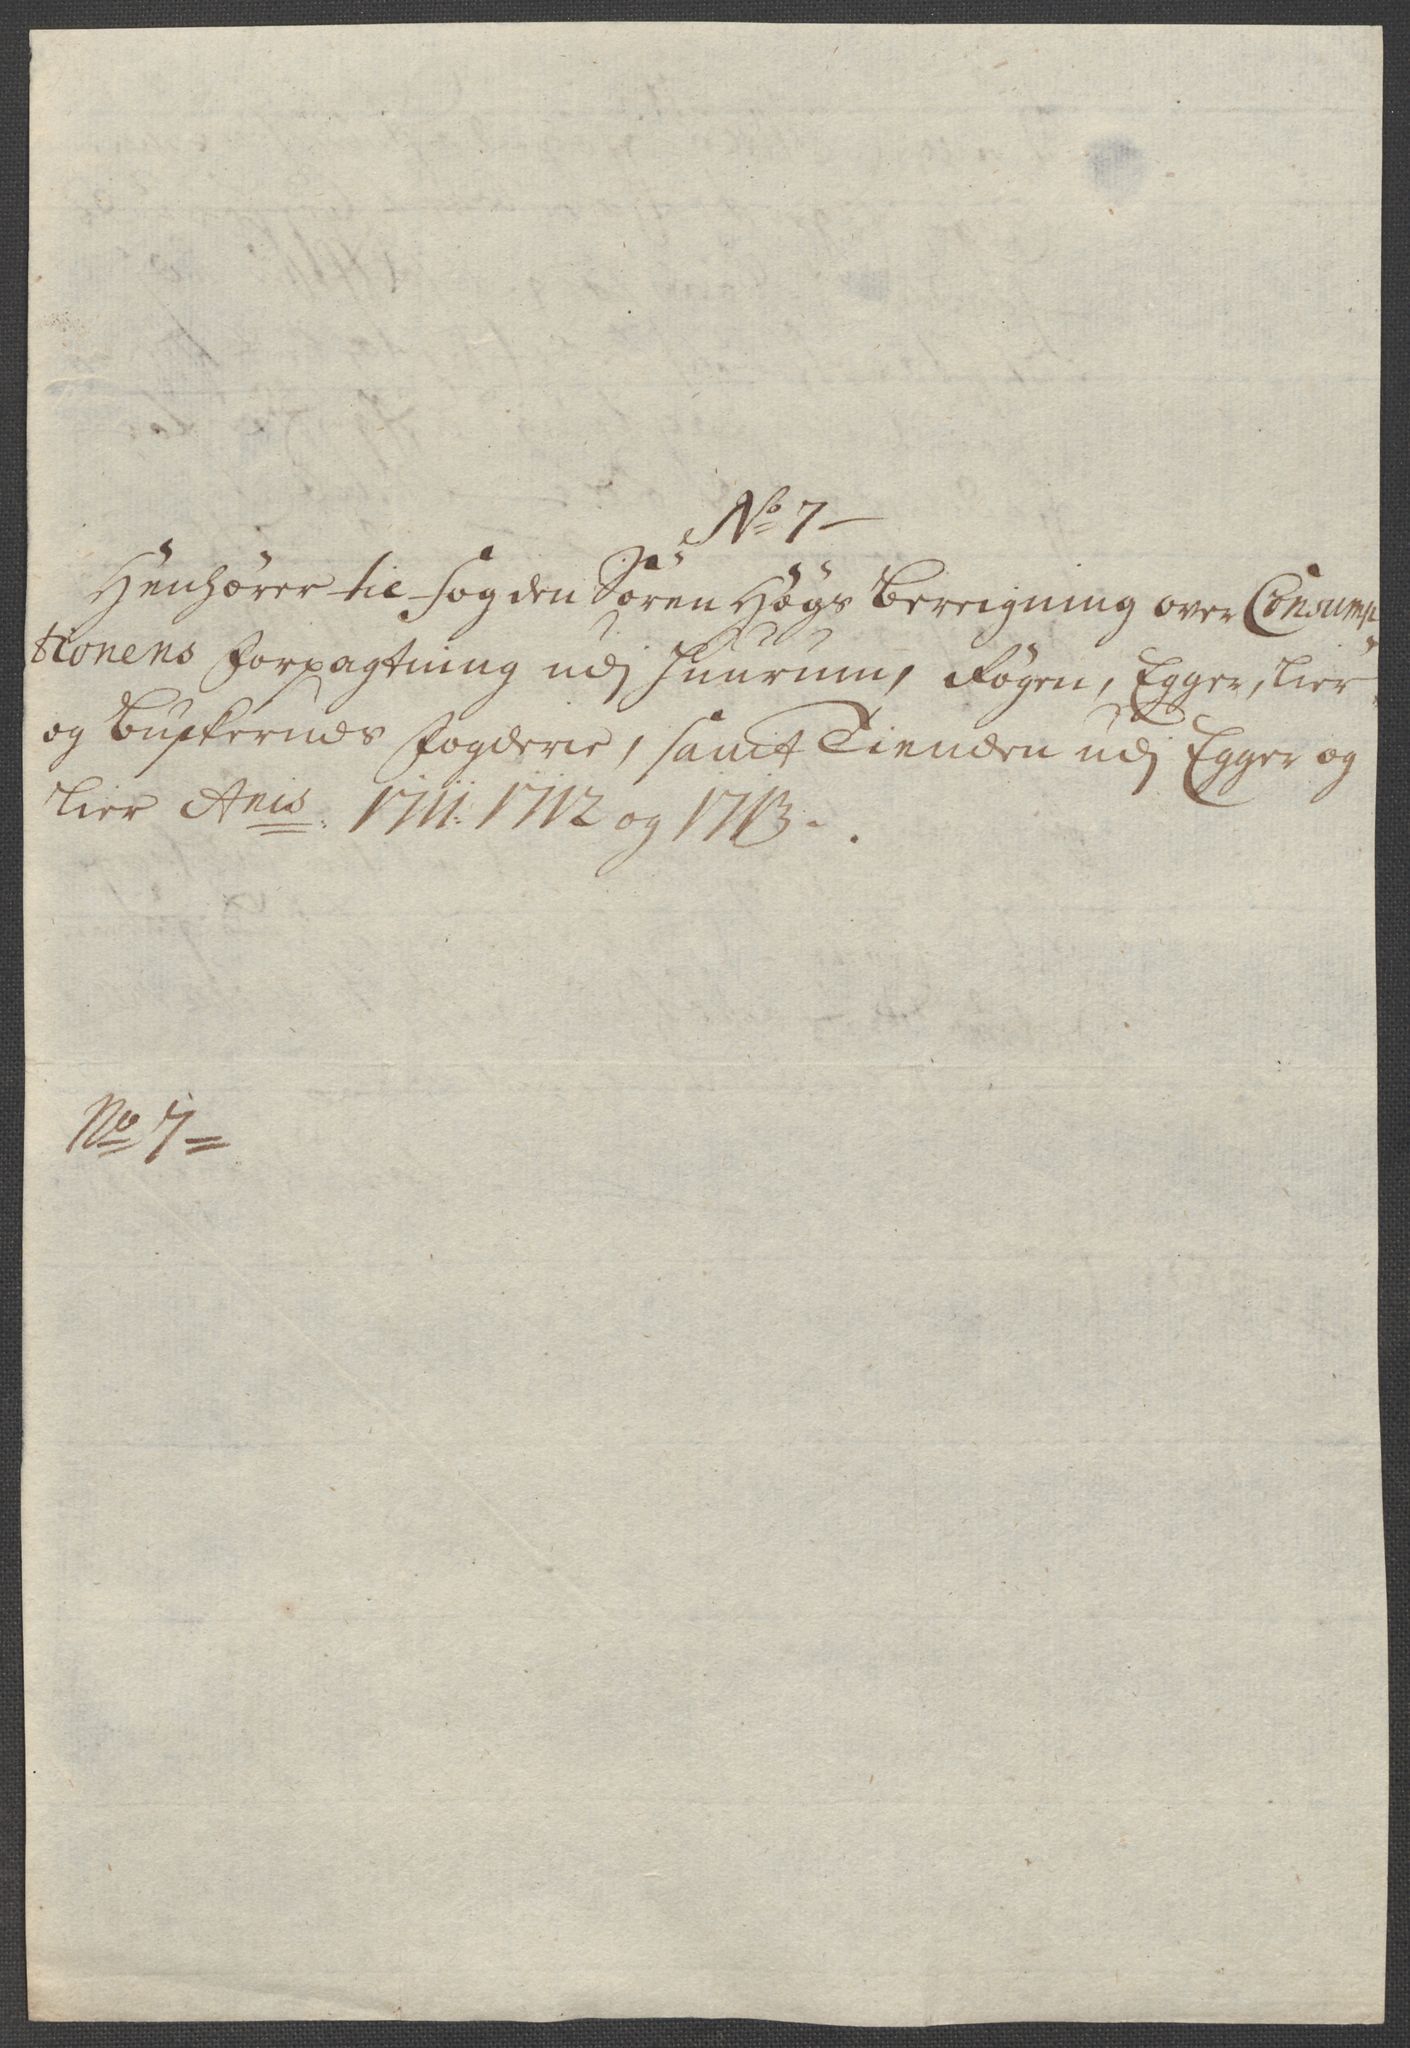 No 7
Henhører til fogden Søren Høgs bereigning over Consump
tionens forpagtning udj Huurum, Røgen, Egger, Lier
og Buskeruds fogderie, samt Tienden udj Egger og
Lier Anis. 1711. 1712 og 1713.
No 7